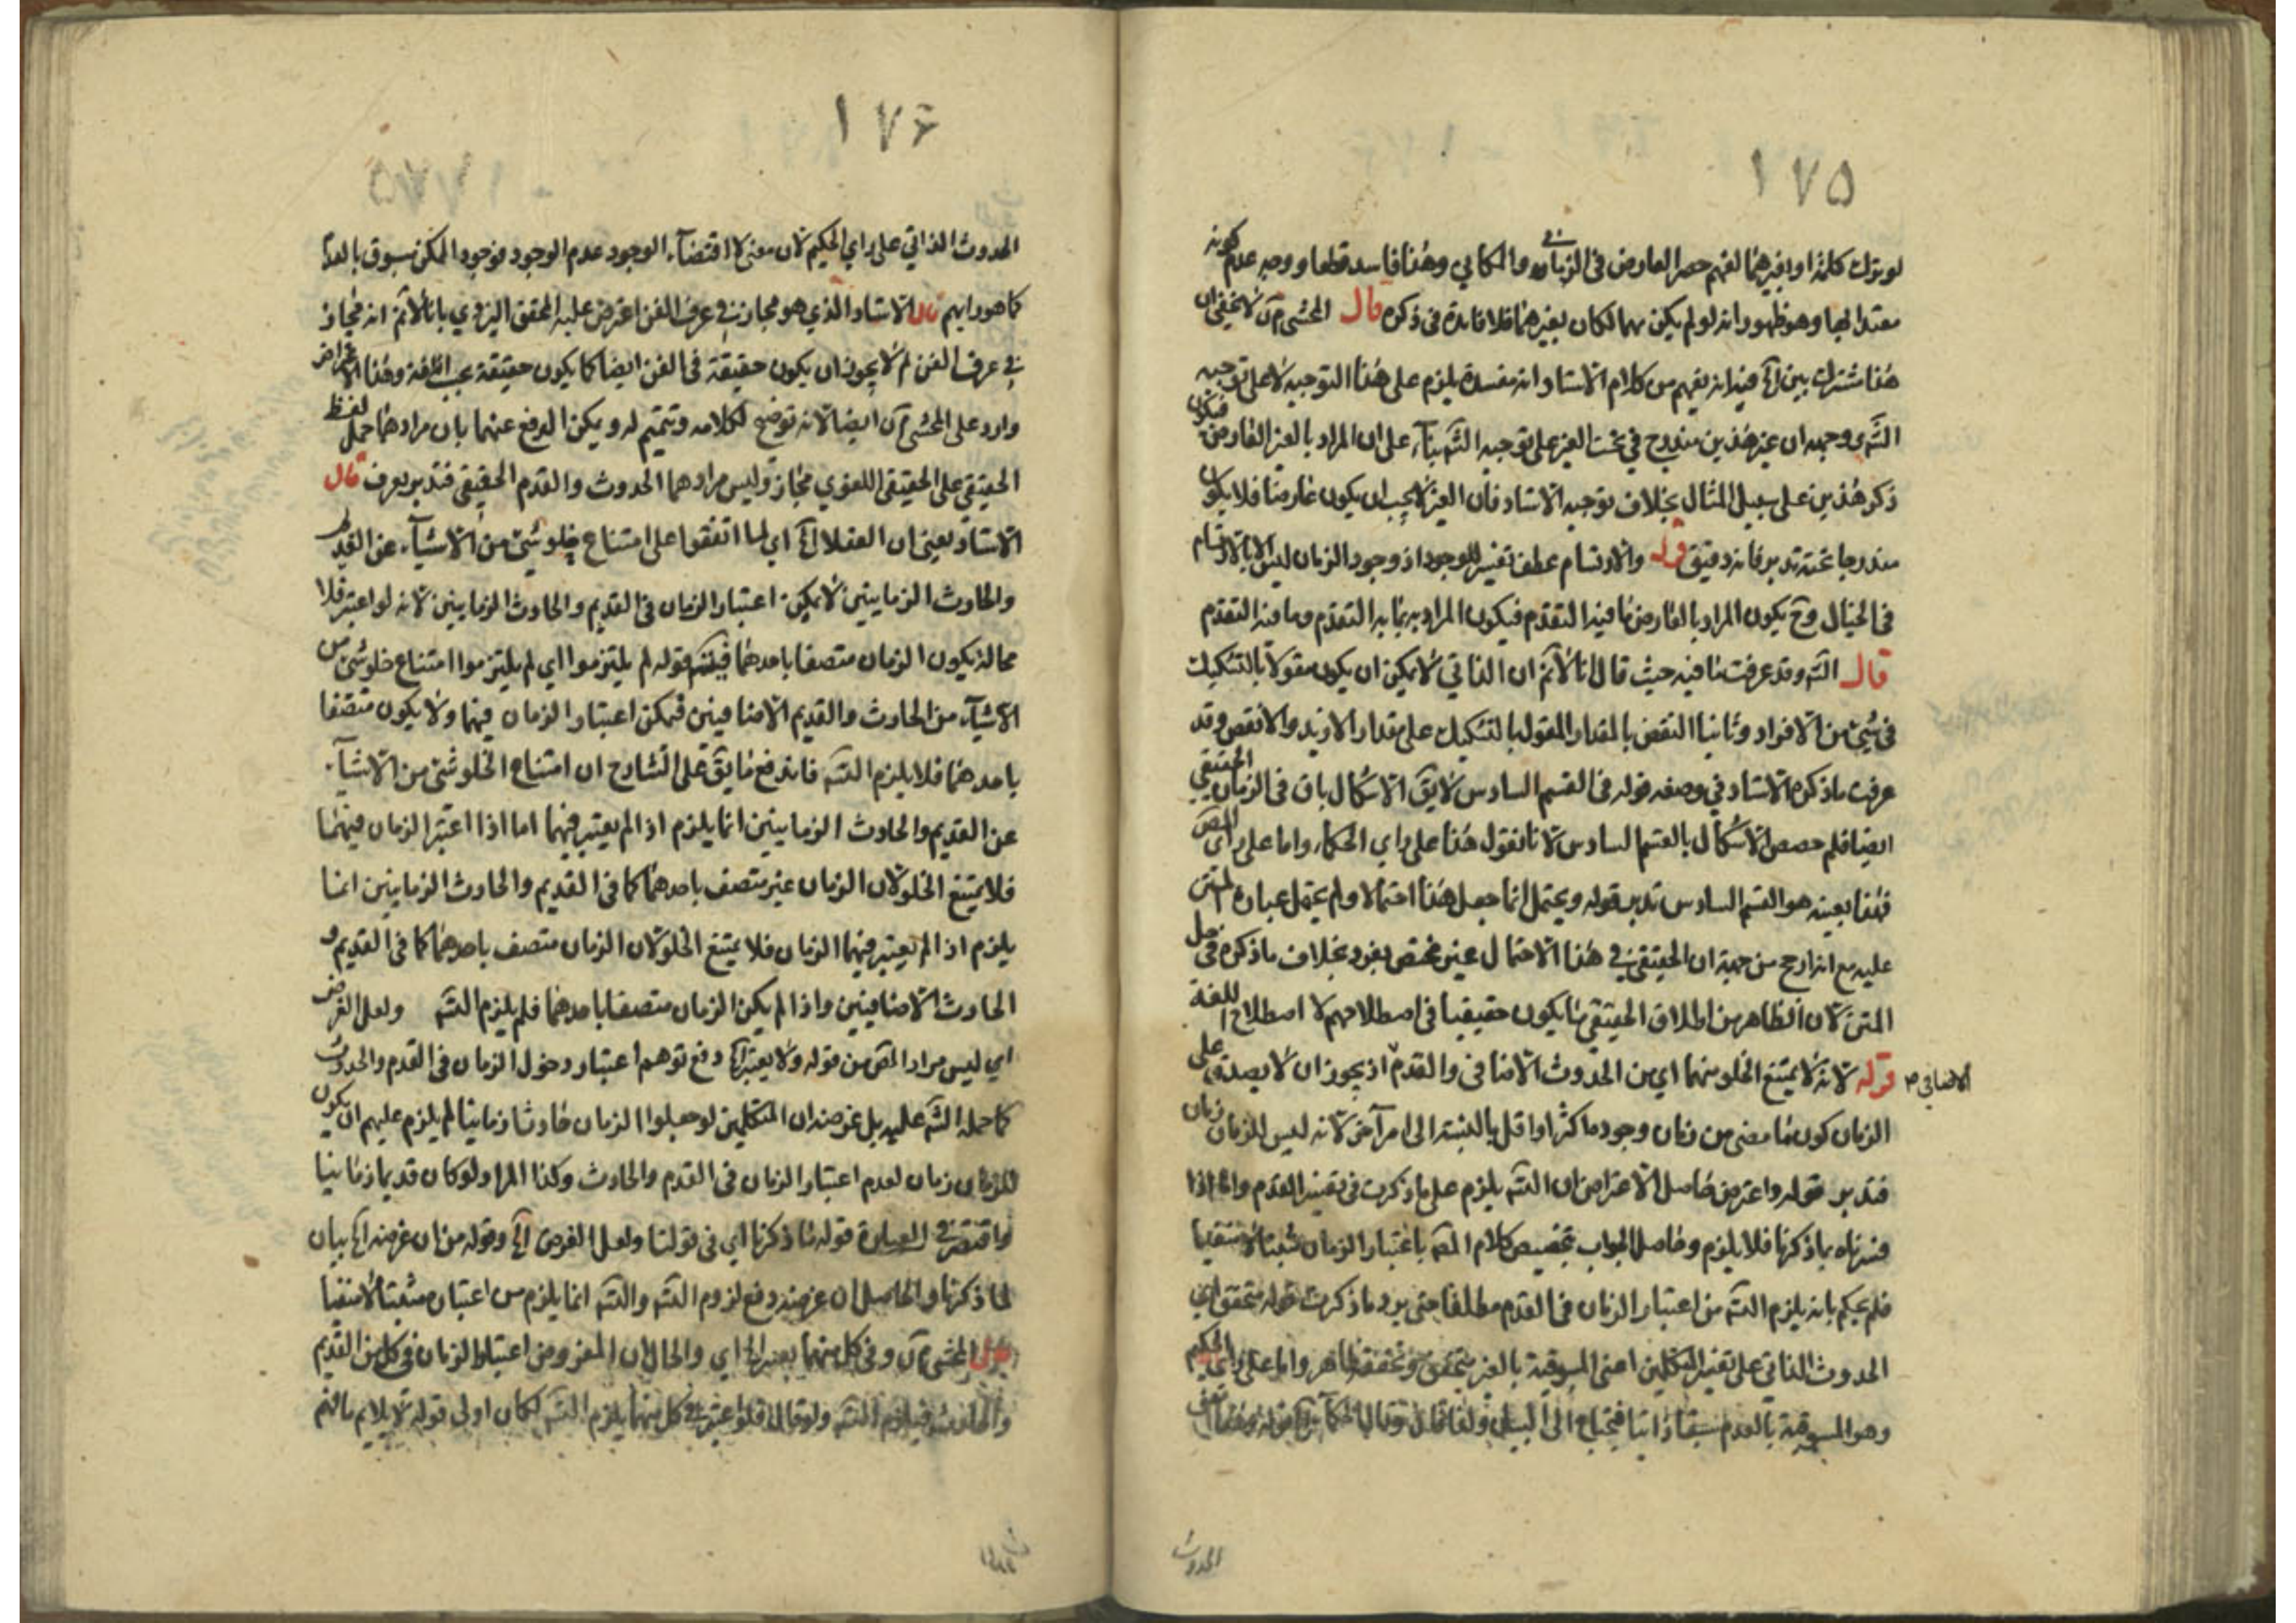 ١٧٥
لو ترك كلمة او بغيرهما لفهم حصر العارض في الزماني والمكاني وهذا فاسد قطعا ووجه عدم كونه
معتدا بها وهو ظهور انه لو لم يكن بهما لكان بغيرهما فلا فائدة في ذكره قال المحشي لا يخفى ان
هذا مشترك بين الخ فيه انه يفهم من كلام الاستاد انه مفسدة يلزم على هذا التوجيه لا على توجيه
الش ووجهه ان غير هذين مندرج في تحت الغير على توجيه الش بناء على ان المراد بالغير العارض فيكون
ذكر هذين على سبيل المثال بخلاف توجيه الاستاد فان الغير لا يجب ان يكون عارضا فلا يكون
مندرجا تحته تدبر فانه دقيق قوله والارتسام عطف تفسير للوجود اذ وجود الزمان ليس الا بالارتسام
في الخيال وح يكون المراد بالعارض ما فيه التقدم فيكون المراد به ما به التقدم وما فيه التقدم
قال الش وقد عرفت ما فيه حيث قال انا لا نم ان الذاتي لا يمكن ان يكون مقولا بالتشكيك
في شيء من الافراد وثانيا النقض بالمقدار المقول بالتشكيك على مقدار الازيد والانقص وقد
عرفت ما ذكره الاستاد في وصفه قوله في القسم السادس لا يق الاشكال باق في الزمان الحقيقي
ايضا فلم خصص الاشكال بالقسم السادس لانا نقول هذا على راي الحكماء واما على راي المص
فهذا بعينه هو القسم السادس تدبر قوله ويحتمل انما جعل هذا احتمالا ولم يحمل عبارة المتن
عليه مع انه ارجح من جهة ان الحقيقي في هذا الاحتمال غير مختص بفرد بخلاف ما ذكره في حل
المتن لان الظاهر من اطلاق الحقيقي ما يكون حقيقيا في اصطلاحهم لا اصطلاح اللغة
قوله لانه لا يمتنع الخلو منهما اي من الحدوث الاضافي والقدم اذ يجوز ان لا يصدق على
الاضافي صح
الزمان كون ما مضى من زمان وجوده اكثر او اقل بالنسبة الى امر آخر لانه ليس للزمان زمان
فتدبر قوله واعترض حاصل الاعتراض ان التس يلزم على ما ذكرت في تفسير القدم واما اذا
فسرناه بما ذكرنا فلا يلزم وحاصل الجواب تخصيص كلام المص باعتبار الزمان مثبتا لا منفيا
فلم يحكم بانه يلزم التس من اعتبار الزمان في القدم مطلقا حتى يرد ما ذكرت قوله متحقق اي
الحدوث الذاتي على تفسير المتكلمين اعني المسبوقية بالغير متحقق وتحققه ظاهر واما على راي الحكيم
وهو المسبوقية بالعدم سبقا ذاتيا فيحتاج الى البيان
الحدوث
١٧٦
الحدوث الذاتي على راي الحكيم لان معنى لا اقتضاء الوجود عدم الوجود فوجود الممكن مسبوق بالعدم
كما هو رايهم قال الاستاد الذي هو مجاز في عرف الفن اعترض عليه المحقق اليزدي بانا لا نم انه مجاز
في عرف الفن لم لا يجوز ان يكون حقيقة في الفن ايضا كما يكون حقيقة بحسب اللغة وهذا الاعتراض
وارد على المحشي ايضا لانه توضيح لكلامه وتتميم له ويمكن الدفع عنهما بان مرادهما حمل لفظ
الحقيقي على الحقيقي اللغوي مجاز وليس مرادهما الحدوث والقدم الحقيقي فتدبر يعرف قال
الاستاد يعني ان العقلاء الخ اي لما اتفقوا على امتناع خلو شيء من الاشياء عن القديم
والحادث الزمانيين لا يمكن اعتبار الزمان في القديم والحادث الزمانيين لانه لو اعتبر فلا
محالة يكون الزمان متصفا باحدهما فيلزم قوله لم يلتزموا اي لم يلتزموا امتناع خلو شيء من
الاشياء من الحادث والقديم الاضافيين فيمكن اعتبار الزمان فيهما ولا يكون متصفا
باحدهما فلا يلزم التس فاندفع ما يق على الشارح ان امتناع الخلو شيء من الاشياء
عن القديم والحادث الزمانيين انما يلزم اذ الم يعتبر فيهما اما اذا اعتبر الزمان فيهما
فلا يمتنع الخلو لان الزمان غير متصف باحدهما كما في القديم والحادث الزمانيين انما
يلزم اذ الم يعتبر فيهما الزمان فلا يمتنع الخلو لان الزمان متصف باحدهما كما في القديم و
الحادث الاضافيين واذا لم يكن الزمان متصفا باحدهما فلم يلزم التس ولعل الغرض
اي ليس مراد المص من قوله ولا يعتبر الخ دفع توهم اعتبار دخول الزمان في القدم والحدوث
كما حمله الش عليه بل غرضه ان المتكلمين لو جعلوا الزمان حادثا زمانيا لم يلزم عليهم ان يكون
للزمان زمان لعدم اعتبار الزمان في القدم والحادث وكذا المراد لو كان قديما زمانيا
واقتصر في العبارة قوله ما ذكرنا اي في قولنا ولعل الغرض الخ وقوله من ان غرضه الخ بيان
لما ذكرنا والحاصل ان غرضه دفع لزوم التس والتس انما يلزم من اعتباره مثبتا لا منفيا
المحشي وفي كل منهما يعتبر الخ اي والحال ان المفروض اعتبار الزمان في كل من القديم
والحادث فيلزم التس ولو قال فلو اعتبر في كل منهما يلزم التس لكان اولى قوله لا يلايم ما فهم